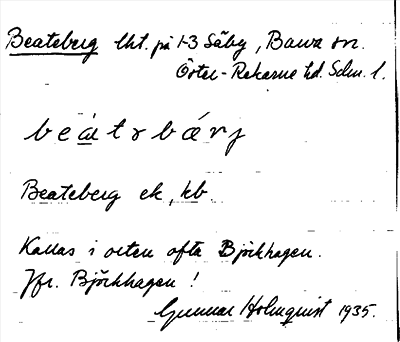 Beateberg lht. på 1-3 Säby, Barva sn.
Öster-Rekarne hd. Sdm. l.
beátɘbǽrj
Beateberg ek, kb
Kallas i orten ofta Björkhagen.
Jfr. Björkhagen!
Gunnar Holmquist 1935.